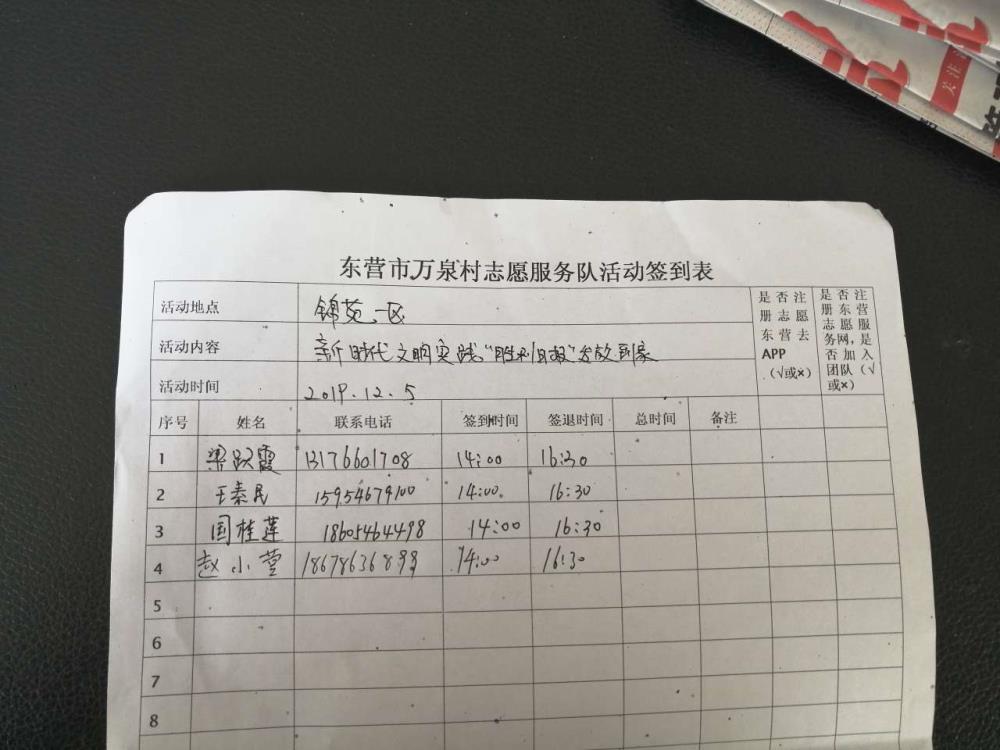 关注
东营市万泉村志愿服务队活动签到表
活动地点 锦苑一区
是否注册志愿东营去APP(√或×)
是否注册东营志愿服务网,是否加入团队(√或×)
活动内容 新时代文明实践"胜利日报"发放到家
活动时间 2019.12.5
序号 姓名 联系电话 签到时间 签退时间 总时间 备注
1 梁跃霞 13176601708 14:00 16:30
2 王泰民 15954679100 14:00. 16:30
3 国桂莲 18605464498 14:00 16:30
4 赵小莹 14:00 16:30
5
6
7
8